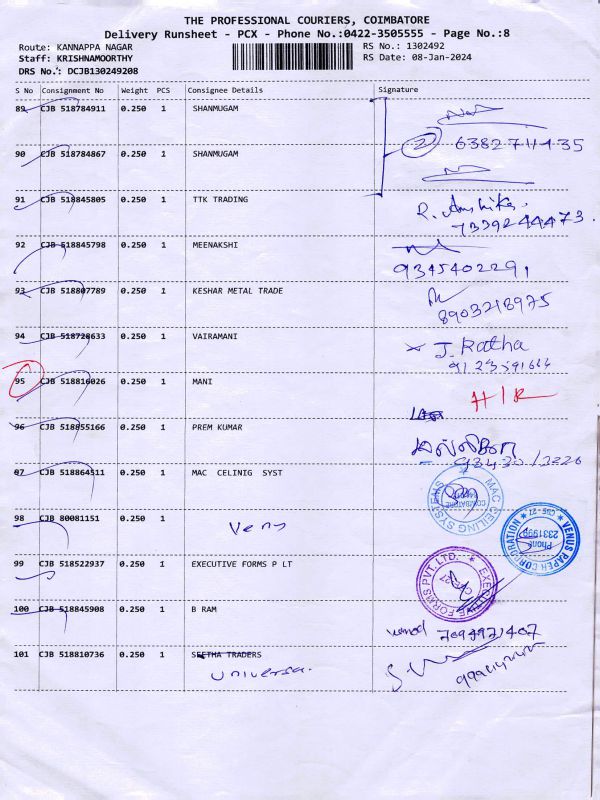 THE PROFESSIONAL COURIERS, COIMBATORE
Delivery Runsheet - PCX - Phone No.:0422-3505555 - Page No.:8
Route: KANNAPPA NAGAR RS No.: 1302492
Staff: KRISHNAMOORTHY RS Date: 08-Jan-2024
DRS No.: DCJB130249208
S No Consignment No Weight PCS Consignee Details Signature
89 CJB 518784911 0.250 1 SHANMUGAM
2 6382711435
90 CJB 518784867 0.250 1 SHANMUGAM
91 CJB 518845805 0.250 1 TTK TRADING
7339244473
92 CJB 518845798 0.250 1 MEENAKSHI
9345402291
93 CJB 518807789 0.250 1 KESHAR METAL TRADE
8903218975
94 CJB 518728633 0.250 1 VAIRAMANI J. Ratha
95 CJB 518816026 0.250 1 MANI
96 CJB 518855166 0.250 1 PREM KUMAR
97 CJB 518864511 0.250 1 MAC CELINIG SYST
MAC CEILING SYSTEMS
COIMBATORE
98 CJB 80081151 0.250 1
Venus
VENUS PAPER CORPORATION
Phone
CBE-27
99 CJB 518522937 0.250 1 EXECUTIVE FORMS P LT
EXECUTIVE FORMS PVT. LTD.
CBE-27
100 CJB 518845908 0.250 1 B RAM
7094971407
101 CJB 518810736 0.250 1 SEETHA TRADERS
Universal.